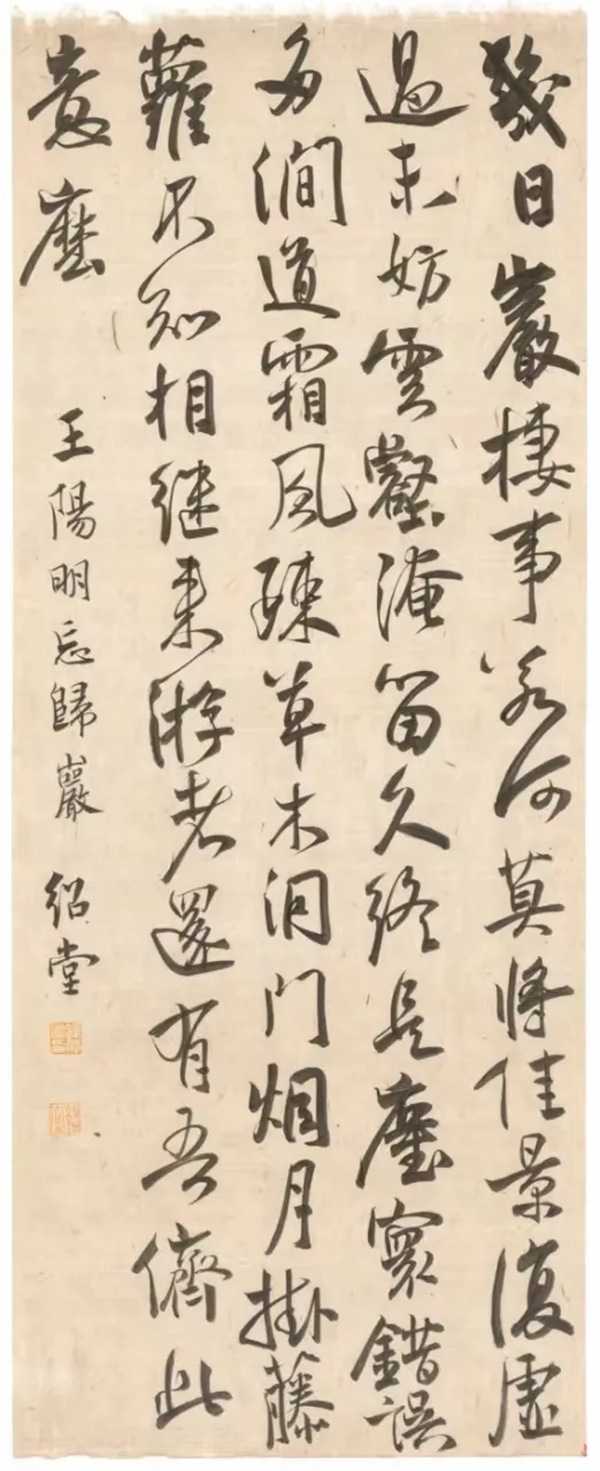 幾日巖棲事若何莫將佳景復虛
過未妨雲壑淹留久終是塵寰錯誤
多澗道霜風疎草木洞門烟月掛藤
蘿不知相继來游者還有吾儕此
意麼
王陽明忘歸巖 紹堂